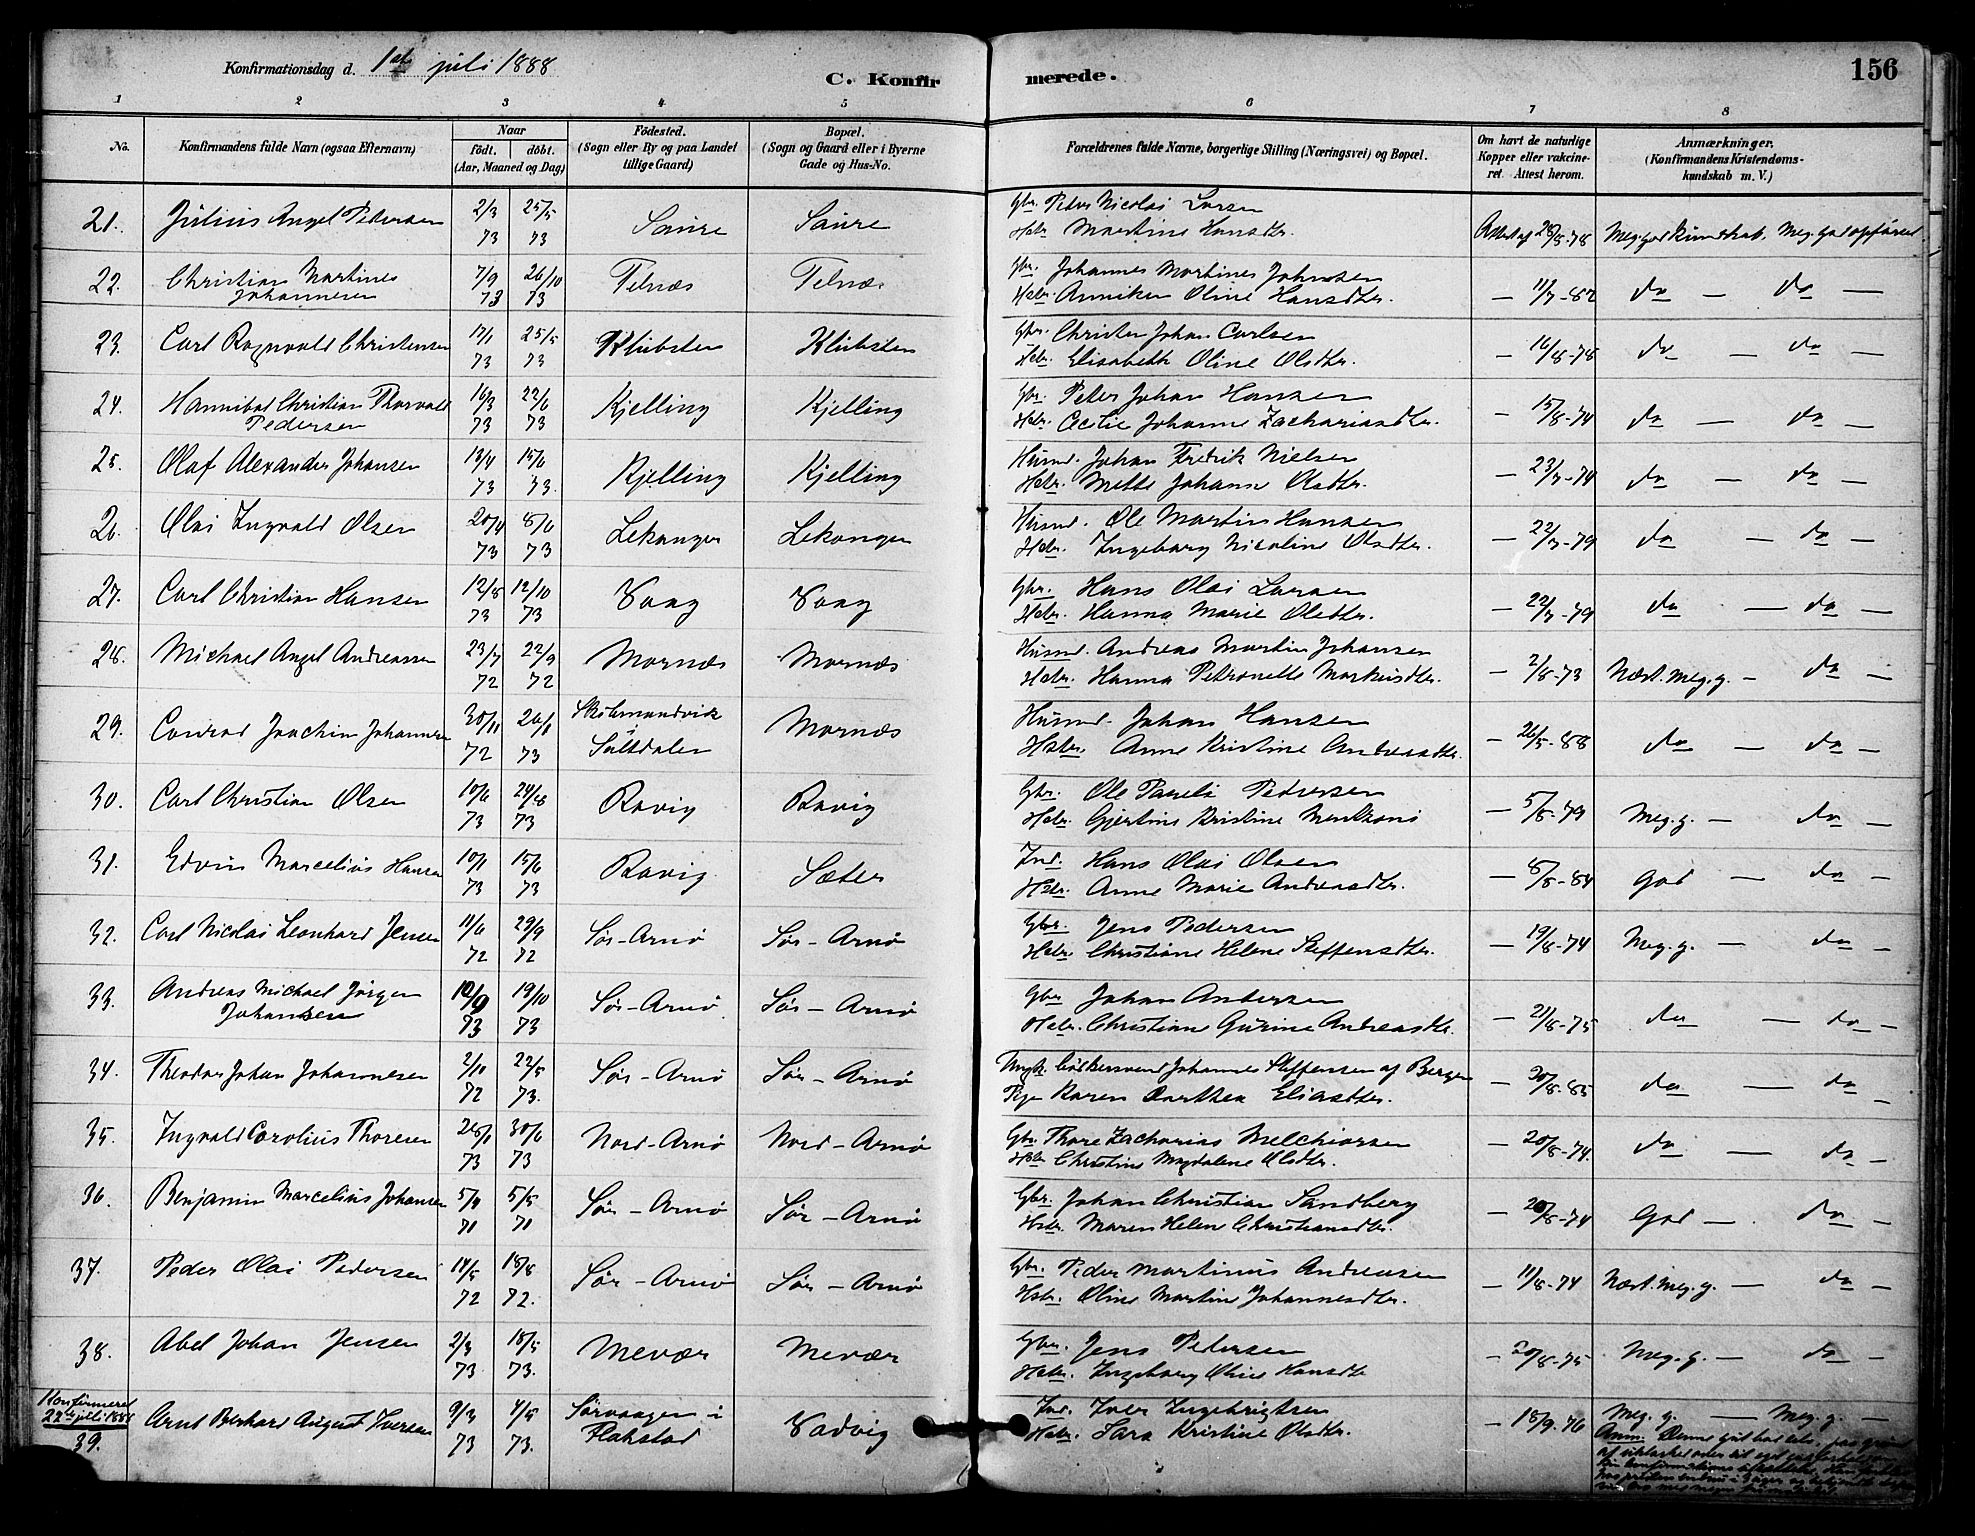 Konfirmationsdag d. 1ste juli 1888
C. Konfirmerede.
156
1 2 3 4 5 6 7 8
No.
Konfirmandens fulde Navn (ogsaa Efternavn)
Naar
Født. døbt.
(Aar, Maaned og Dag)
Fødested.
(Sogn eller By og paa Landet
tillige Gaard)
Bopæl.
(Sogn og Gaard eller i Byerne
Gade og Hus-No.
Forældrenes fulde Navne, borgerlige Stilling (Næringsvei) og Bopæl.
Om havt de naturlige
Kopper eller vakcine-
ret. Attest herom.
Anmærkninger.
(Konfirmandens Kristendoms-
kundskab m. V.)
21. Julius Angel Pedersen 2/3 73 25/5 73 Saure Saure Gbr. Peder Nicolai Larsen
Hstr. Martine Hansdtr. Attest af 28/8-78 Meg. god kundskab. Meg. god opførsel
22. Christian Martines 7/9 73 26/10 73 Telnæs Telnæs Gbr. Johannes Martines Johnsen
Johannesen Hstr. Anniken Oline Hansdtr. — 11/7-87 do — do —
23. Carl Ragnvald Christensen 17/1 73 25/5 73 Klubsten Klubsten Gbr. Christen Johan Carlsen
Hstr. Elisabeth Oline Olsdtr. — 16/8-78 do — do —
24. Hannibal Christian Thorvald 16/3 73 22/6 73 Kjelling Kjelling Gbr. Peter Johan Hansen
Pedersen Hstr. Cecilie Johanna Zachariasdtr. — 15/8-74 do — do
25. Olaf Alexander Johansen 13/4 73 15/6 73 Kjelling Kjelling Husmd. Johan Fredrik Nielsen
Hstr. Mette Johanna Olsdtr. — 23/7-74 do — do —
26. Olai Ingvald Olsen 20/4 73 8/6 73 Lekanger Lekanger Husmd. Ole Martin Hansen
Hstr. Ingeborg Nicoline Olsdtr. — 22/7-79 do — do —
27. Carl Christian Hansen 12/8 73 12/10 73 Vaag Vaag Gbr. Hans Olai Larsen
Hstr. Hanna Marie Olsdtr. — 22/7-79 do — do —
28. Michael Angel Andreassen 23/7 72 22/9 72 Mornæs Mornæs Husmd. Andreas Martin Johansen
Hstr. Hanna Petronelle Markusdtr. — 2/8-73 Næst. meg. g. — do
29. Conrad Joachim Johannsen 30/11 72 26/1 73 Skibmandvik Saltdalen Mornæs Husmd. Johan Hansen
Hstr. Anne Kristine Andreasdtr. — 26/5-88 do — do —
30. Carl Christian Olsen 10/6 73 24/8 73 Ravig Ravig Gbr. Ole Pauels Pedersen
Hstr. Gjertine Kristine Mentzoni — 5/8-79 Meg. g. — do —
31. Edvin Marcelius Hansen 10/1 73 15/6 73 Ravig Sæter Ind. Hans Olai Olsen
Hstr. Anne Marie Andreasdtr. — 8/8-84 God — do —
32. Carl Nicolai Leonhard Jensen 11/6 72 29/9 72 Sør-Arnø Sør-Arnø Gbr. Jens Pedersen
Hstr. Christiane Helene Steffensdtr. — 19/8-74 Meg. g. — do —
33. Andreas Michael Jørgen 10/9 73 19/10 73 Sør-Arnø Sør-Arnø Gbr. Johan Andersen
Johansen Hstr. Christian Gurine Andreasdtr. — 21/8-75 do — do —
34. Theodor Johan Johannesen 2/10 72 22/5 73. Sør-Arnø Sør-Arnø Ungk. Johannes Steffensen af Bergen
Pige Karen Dorthea Eliasdtr. — 20/8-85 do — do —
35. Ingvald Carolius Thoresen 26/1 73 30/6 73 Nord-Arnø Nord-Arnø Gbr. Thore Zacharias Melchiorsen
Hstr. Christine Magdalene Olsdtr. — 20/8-74. do — do —
36. Benjamin Marcelius Johansen 71 5/5 71 Sør-Arnø Sør-Arnø Gbr. Johan Christian Sandberg
Hstr. Maren Helene Christiansdtr. — 20/8-74 God — do —
37. Peder Olai Pedersen 14/5 72 18/8 72. Sør-Arnø Sør-Arnø Gbr. Peder Martinus Andreasen
Hstr. Oline Martine Johannesdtr. — 11/8-74 Næst. meg. g. — do —
38. Abel Johan Jensen 2/3 73 18/5 73. Mevær Mevær Gbr. Jens Pedersen
Hstr. Ingeborg Oline Hansdtr — 20/8-75 Meg. g. — do —
Konfirmeret
22de juli 1888
39. Arnt Berhard August Iversen 9/3 73 4/5 73. Sørvaagen i Flakstad Vadvig Ind. Iver Ingebrigtsen
Hstr. Sara Kristine Olsdtr. — 18/9-76 Meg. g. — Meg. g. —
Anm. Denne gut